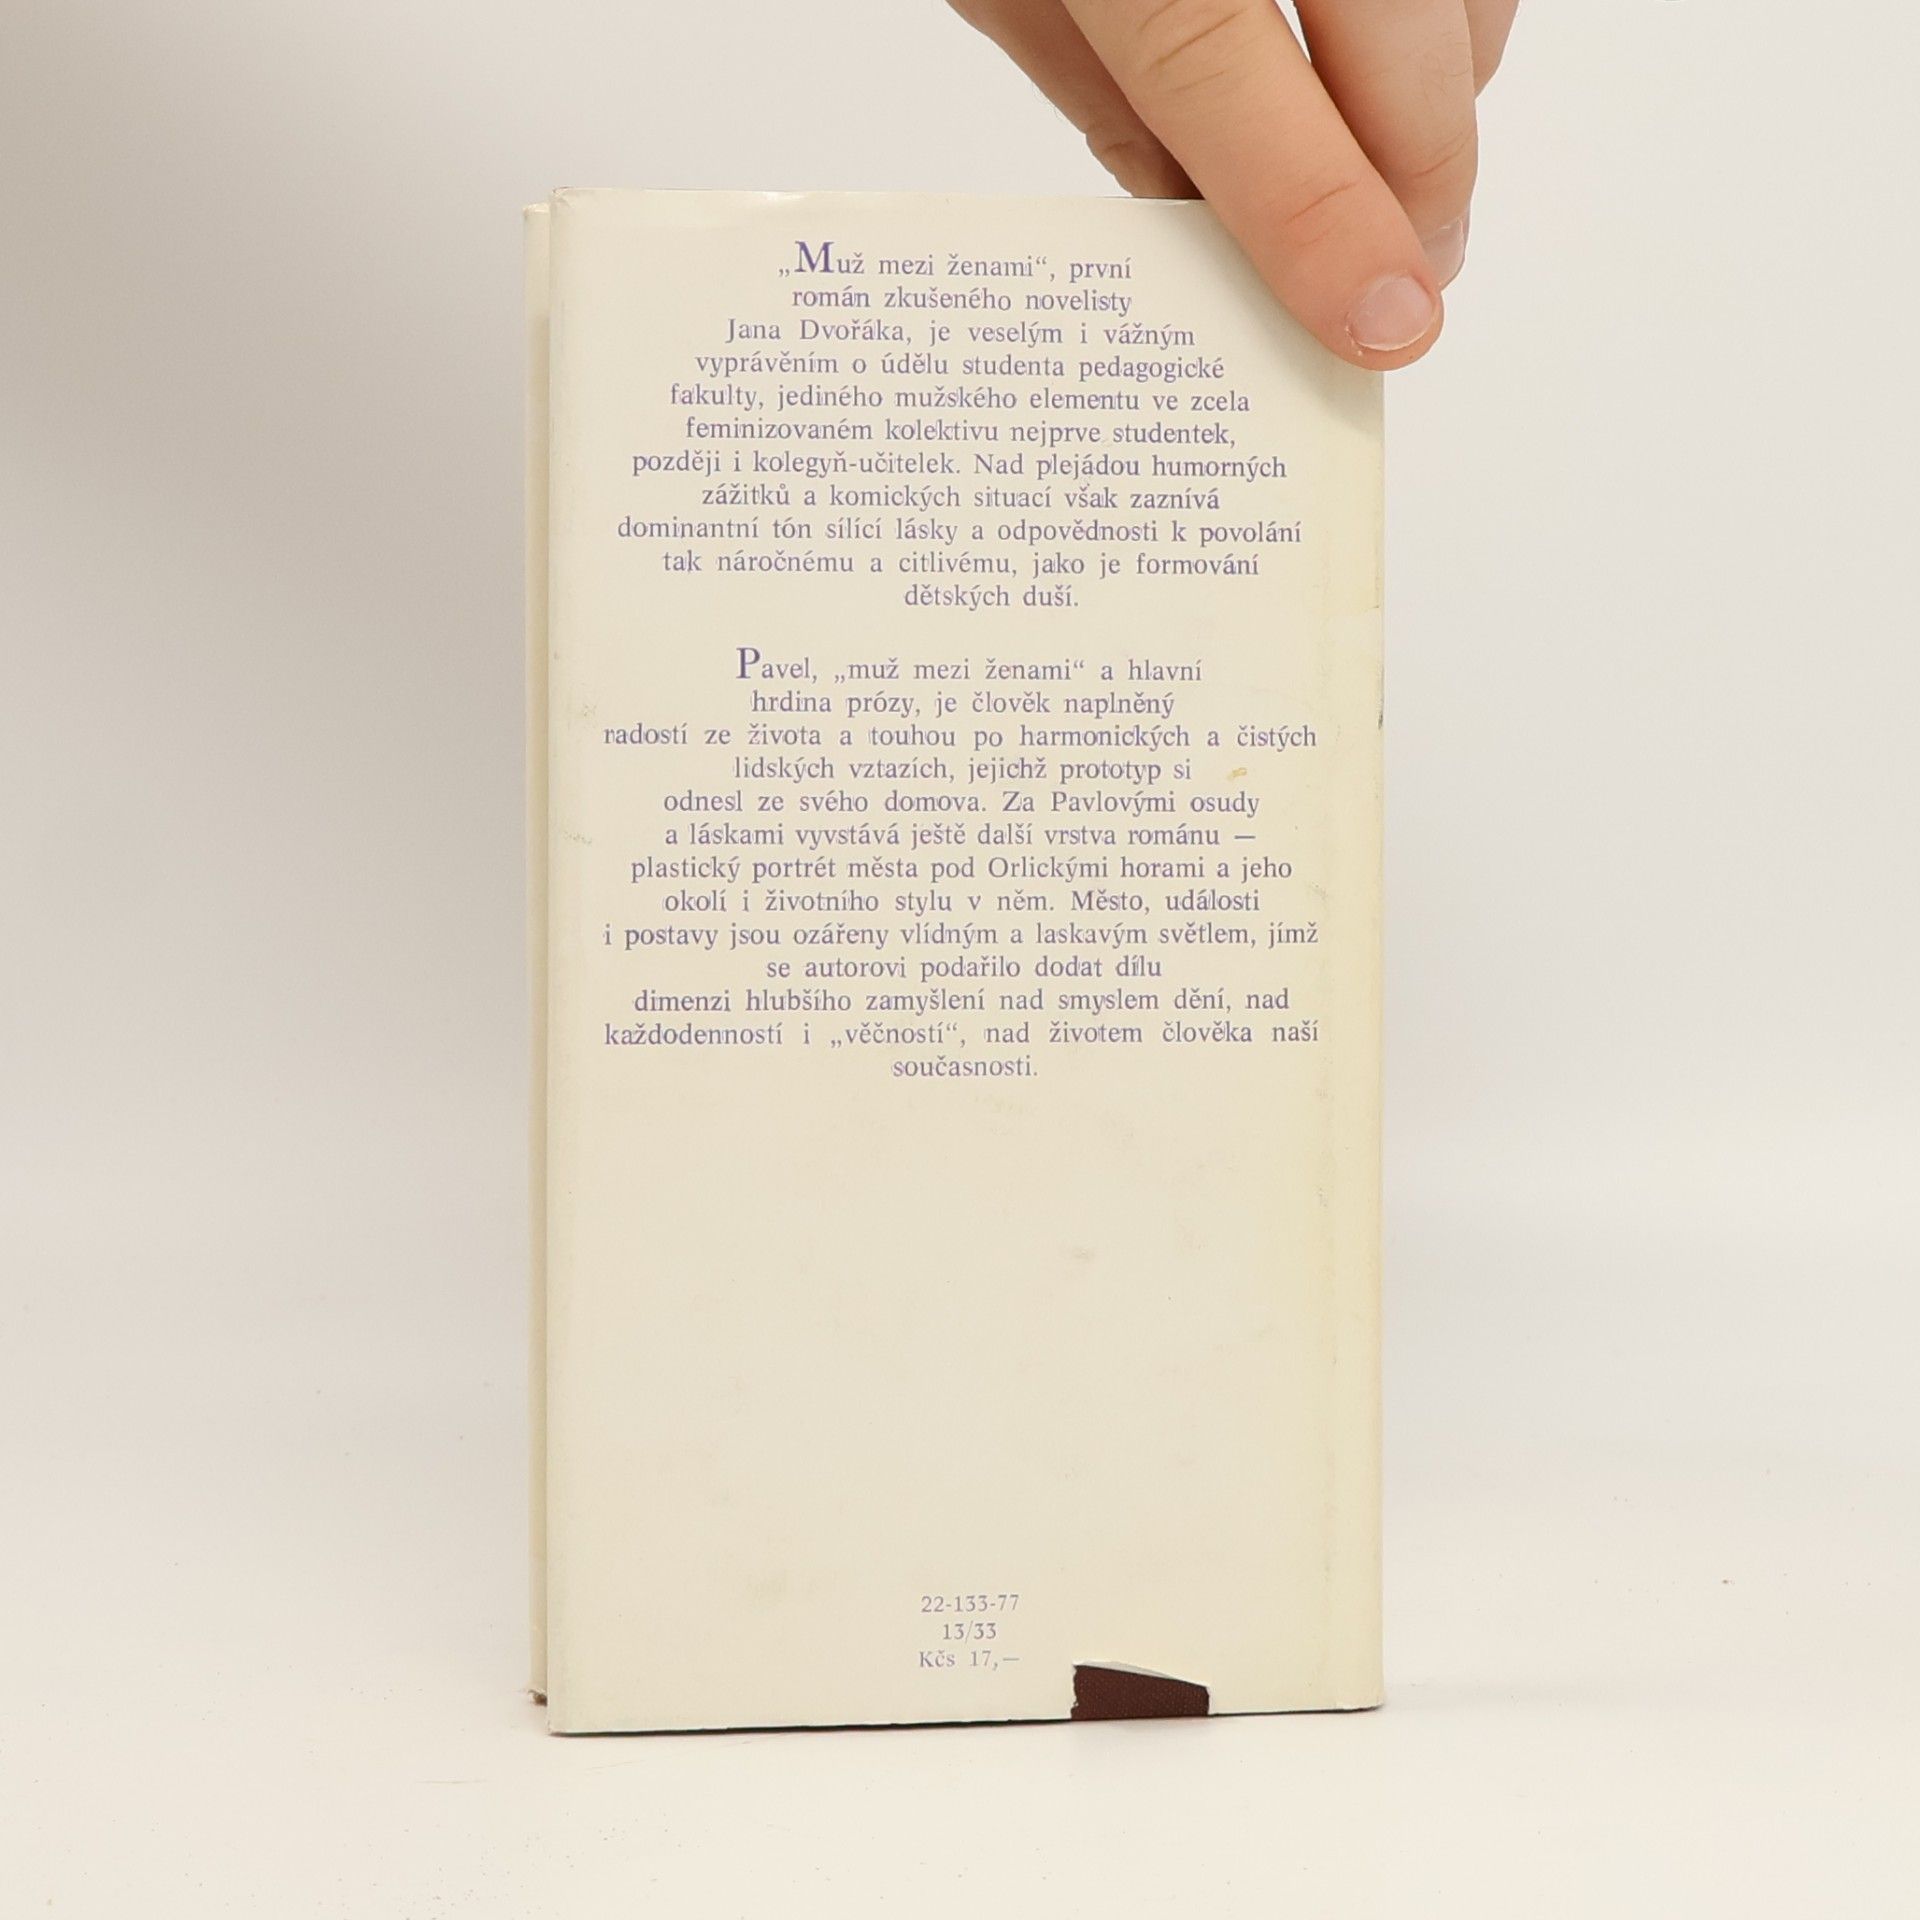 „Muž mezi ženami“, první
román zkušeného novelisty
Jana Dvořáka, je veselým i vážným
vyprávěním o údělu studenta pedagogické
fakulty, jediného mužského elementu ve zcela
feminizovaném kolektivu nejprve studentek,
později i kolegyň-učitelek. Nad plejádou humorných
zážitků a komických situací však zaznívá
dominantní tón sílící lásky a odpovědnosti k povolání
tak náročnému a citlivému, jako je formování
dětských duší.
Pavel, „muž mezi ženami“ a hlavní
hrdina prózy, je člověk naplněný
radostí ze života a touhou po harmonických a čistých
lidských vztazích, jejichž prototyp si
odnesl ze svého domova. Za Pavlovými osudy
a láskami vyvstává ještě další vrstva románu —
plastický portrét města pod Orlickými horami a jeho
okolí i životního stylu v něm. Město, události
i postavy jsou ozářeny vlídným a laskavým světlem, jímž
se autorovi podařilo dodat dílu
dimenzi hlubšího zamyšlení nad smyslem dění, nad
každodenností i „věčností“, nad životem člověka naší
současnosti.
22-133-77
13/33
Kčs 17,—